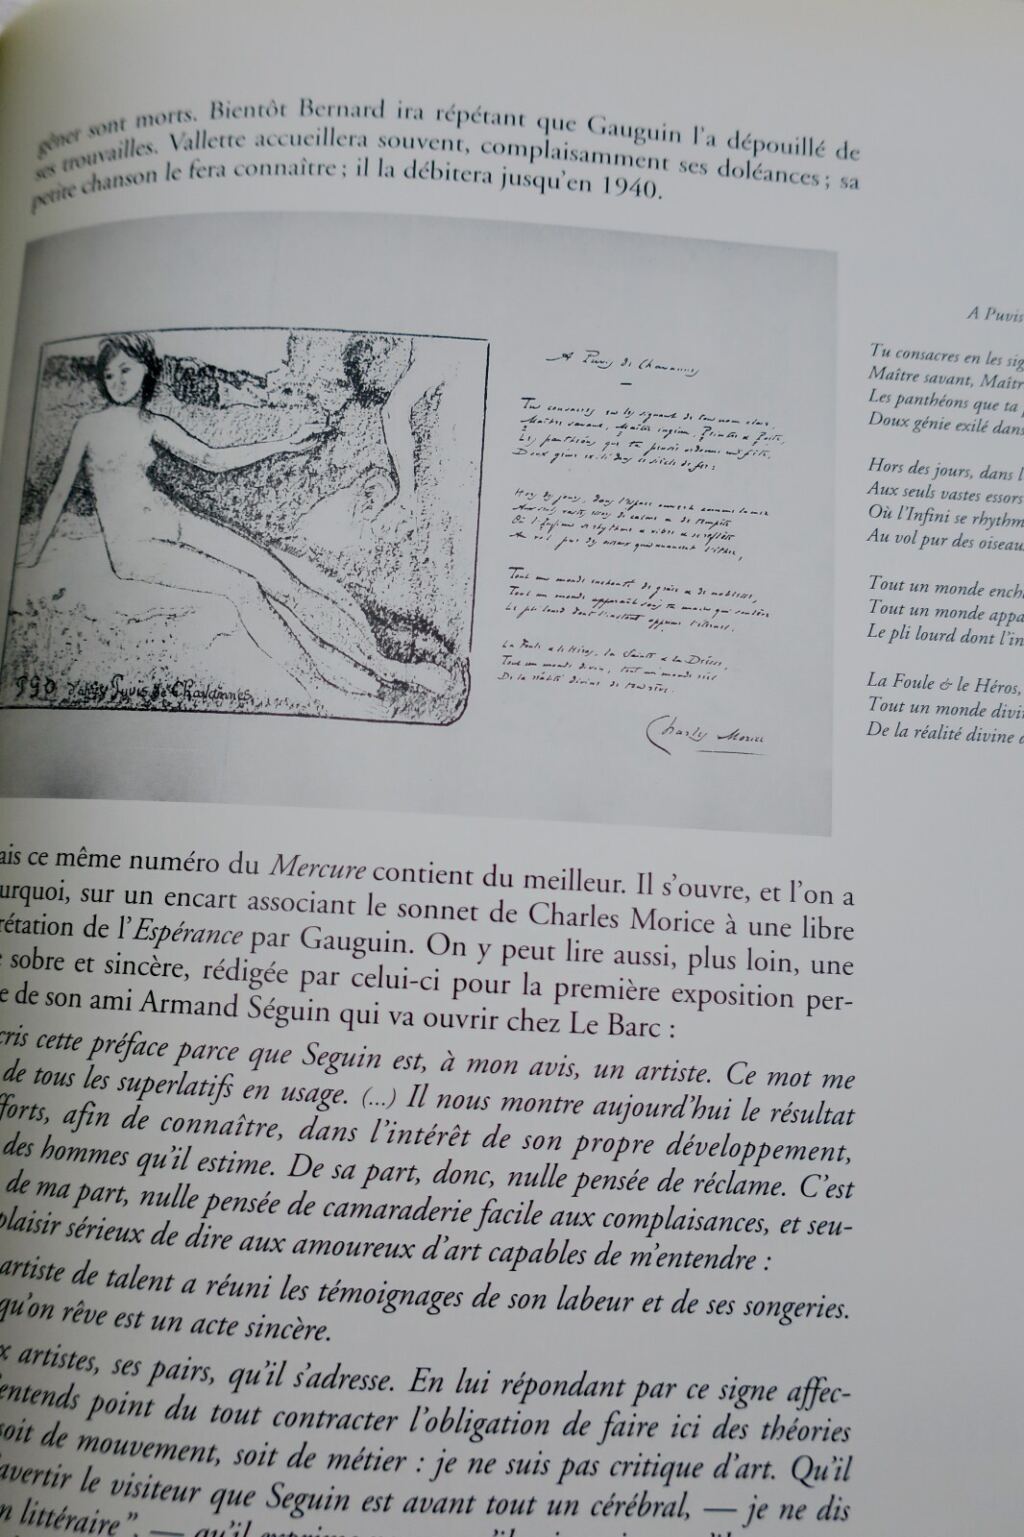 gêner sont morts. Bientôt Bernard ira répétant que Gauguin l'a dépouillé de
ses trouvailles. Vallette accueillera souvent, complaisamment ses doléances ; sa
petite chanson le fera connaître ; il la débitera jusqu'en 1940.
d'après Puvis de Chavannes
A Puvis de Chavannes
Maître savant, Maître ingénu, Peintre & Poète,
Tout un monde enchanté de grâce & de noblesse,
Tout un monde apparaît
Le pli lourd dont l'instant opprime
La Foule & le Héros, la Sainte & la Déesse,
Tout un monde divin, tout un monde réel
De la réalité divine
Charles Morice
A Puvis
Tu consacres en les sig
Maître savant, Maîtr
Les panthéons que ta
Doux génie exilé dans
Hors des jours, dans l
Aux seuls vastes essors
Où l'Infini se rhythm
Au vol pur des oiseau
Tout un monde ench
Tout un monde appa
Le pli lourd dont l'in
La Foule & le Héros,
Tout un monde divi
De la réalité divine
ais ce même numéro du Mercure contient du meilleur. Il s'ouvre, et l'on a
urquoi, sur un encart associant le sonnet de Charles Morice à une libre
rétation de l'Espérance par Gauguin. On y peut lire aussi, plus loin, une
sobre et sincère, rédigée par celui-ci pour la première exposition per-
e de son ami Armand Séguin qui va ouvrir chez Le Barc :
cris cette préface parce que Seguin est, à mon avis, un artiste. Ce mot me
de tous les superlatifs en usage. (...) Il nous montre aujourd'hui le résultat
fforts, afin de connaître, dans l'intérêt de son propre développement,
des hommes qu'il estime. De sa part, donc, nulle pensée de réclame. C'est
de ma part, nulle pensée de camaraderie facile aux complaisances, et seu-
plaisir sérieux de dire aux amoureux d'art capables de m'entendre :
artiste de talent a réuni les témoignages de son labeur et de ses songeries.
qu'on rêve est un acte sincère.
x artistes, ses pairs, qu'il s'adresse. En lui répondant par ce signe affec-
entends point du tout contracter l'obligation de faire ici des théories
soit de mouvement, soit de métier : je ne suis pas critique d'art. Qu'il
avertir le visiteur que Seguin est avant tout un cérébral, — je ne dis
n littéraire", — qu'il